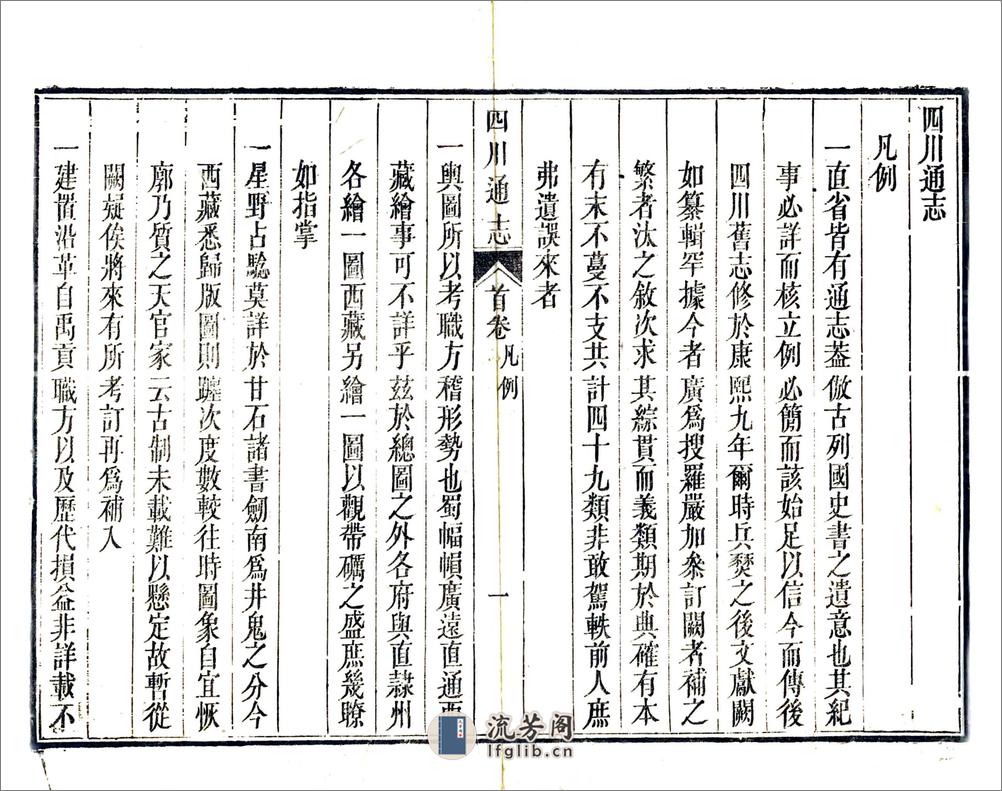 四川通志
凡例
一直省皆有通志葢倣古列國史書之遺意也其紀
事必詳而核立例必簡而該始足以信今而傳後
四川舊志修於康熙九年爾時兵燹之後文獻闕
如纂輯罕據今者廣爲搜羅嚴加叅訂闕者補之
繁者汰之敘次求其綜貫而義類期於典確有本
有末不蔓不支共計四十九類非敢駕軼前人庶
弗遺誤來者
四川通志 首卷 凡例 一
一輿圖所以考職方稽形勢也蜀幅幀廣遠直通西
藏繪事可不詳乎茲於總圖之外各府與直隸州
各繪一圖西藏另繪一圖以觀帶礪之盛庶幾瞭
如指掌
一星野占驗莫詳於甘石諸書劒南爲井鬼之分今
西藏悉歸版圖則躔次度數較往時圖象自宜恢
廓乃質之天官家云古制未載難以懸定故暫從
闕疑俟將來有所考訂再爲補入
一建置沿革自禹貢職方以及歷代損益非詳載不
流芳阁
lfglib.cn